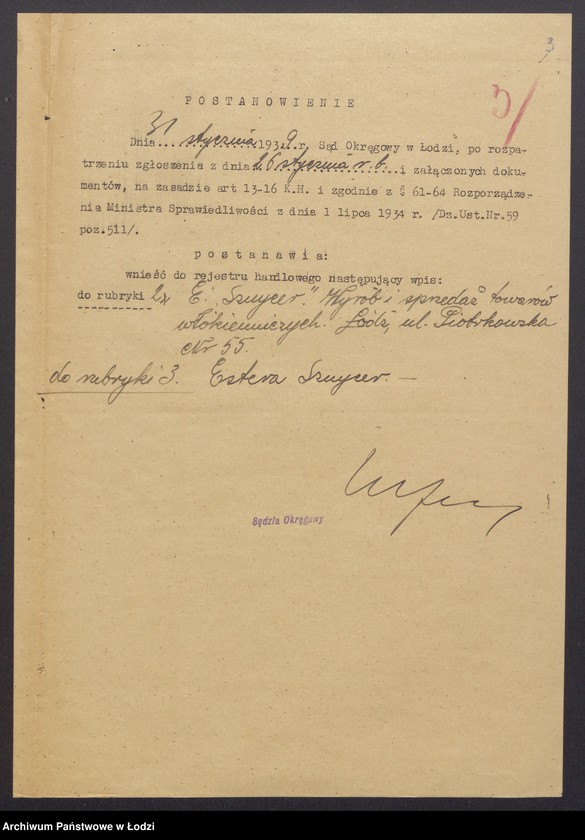 3
5/
POSTANOWIENIE
Dnia 31 stycznia 1939 r. Sąd Okręgowy w Łodzi, po rozpa-
trzeniu zgłoszenia z dnia 26 stycznia r.b. i załączonych doku-
mentów, na zasadzie art 13-16 K.H. i zgodnie z § 61-64 Rozporządze-
nia Ministra Sprawiedliwości z dnia 1 lipca 1934 r. /Dz.Ust.Nr.59
poz.511/.
postanawia:
wnieść do rejestru handlowego następujący wpis:
do rubryki 2 E. "Sznycer." Wyrób i sprzedaż towarów
włókienniczych. Łódź, ul. Piotrkowska
Nr 55.
do rubryki 3. Estera Sznycer. —
Sędzia Okręgowy
Archiwum Państwowe w Łodzi